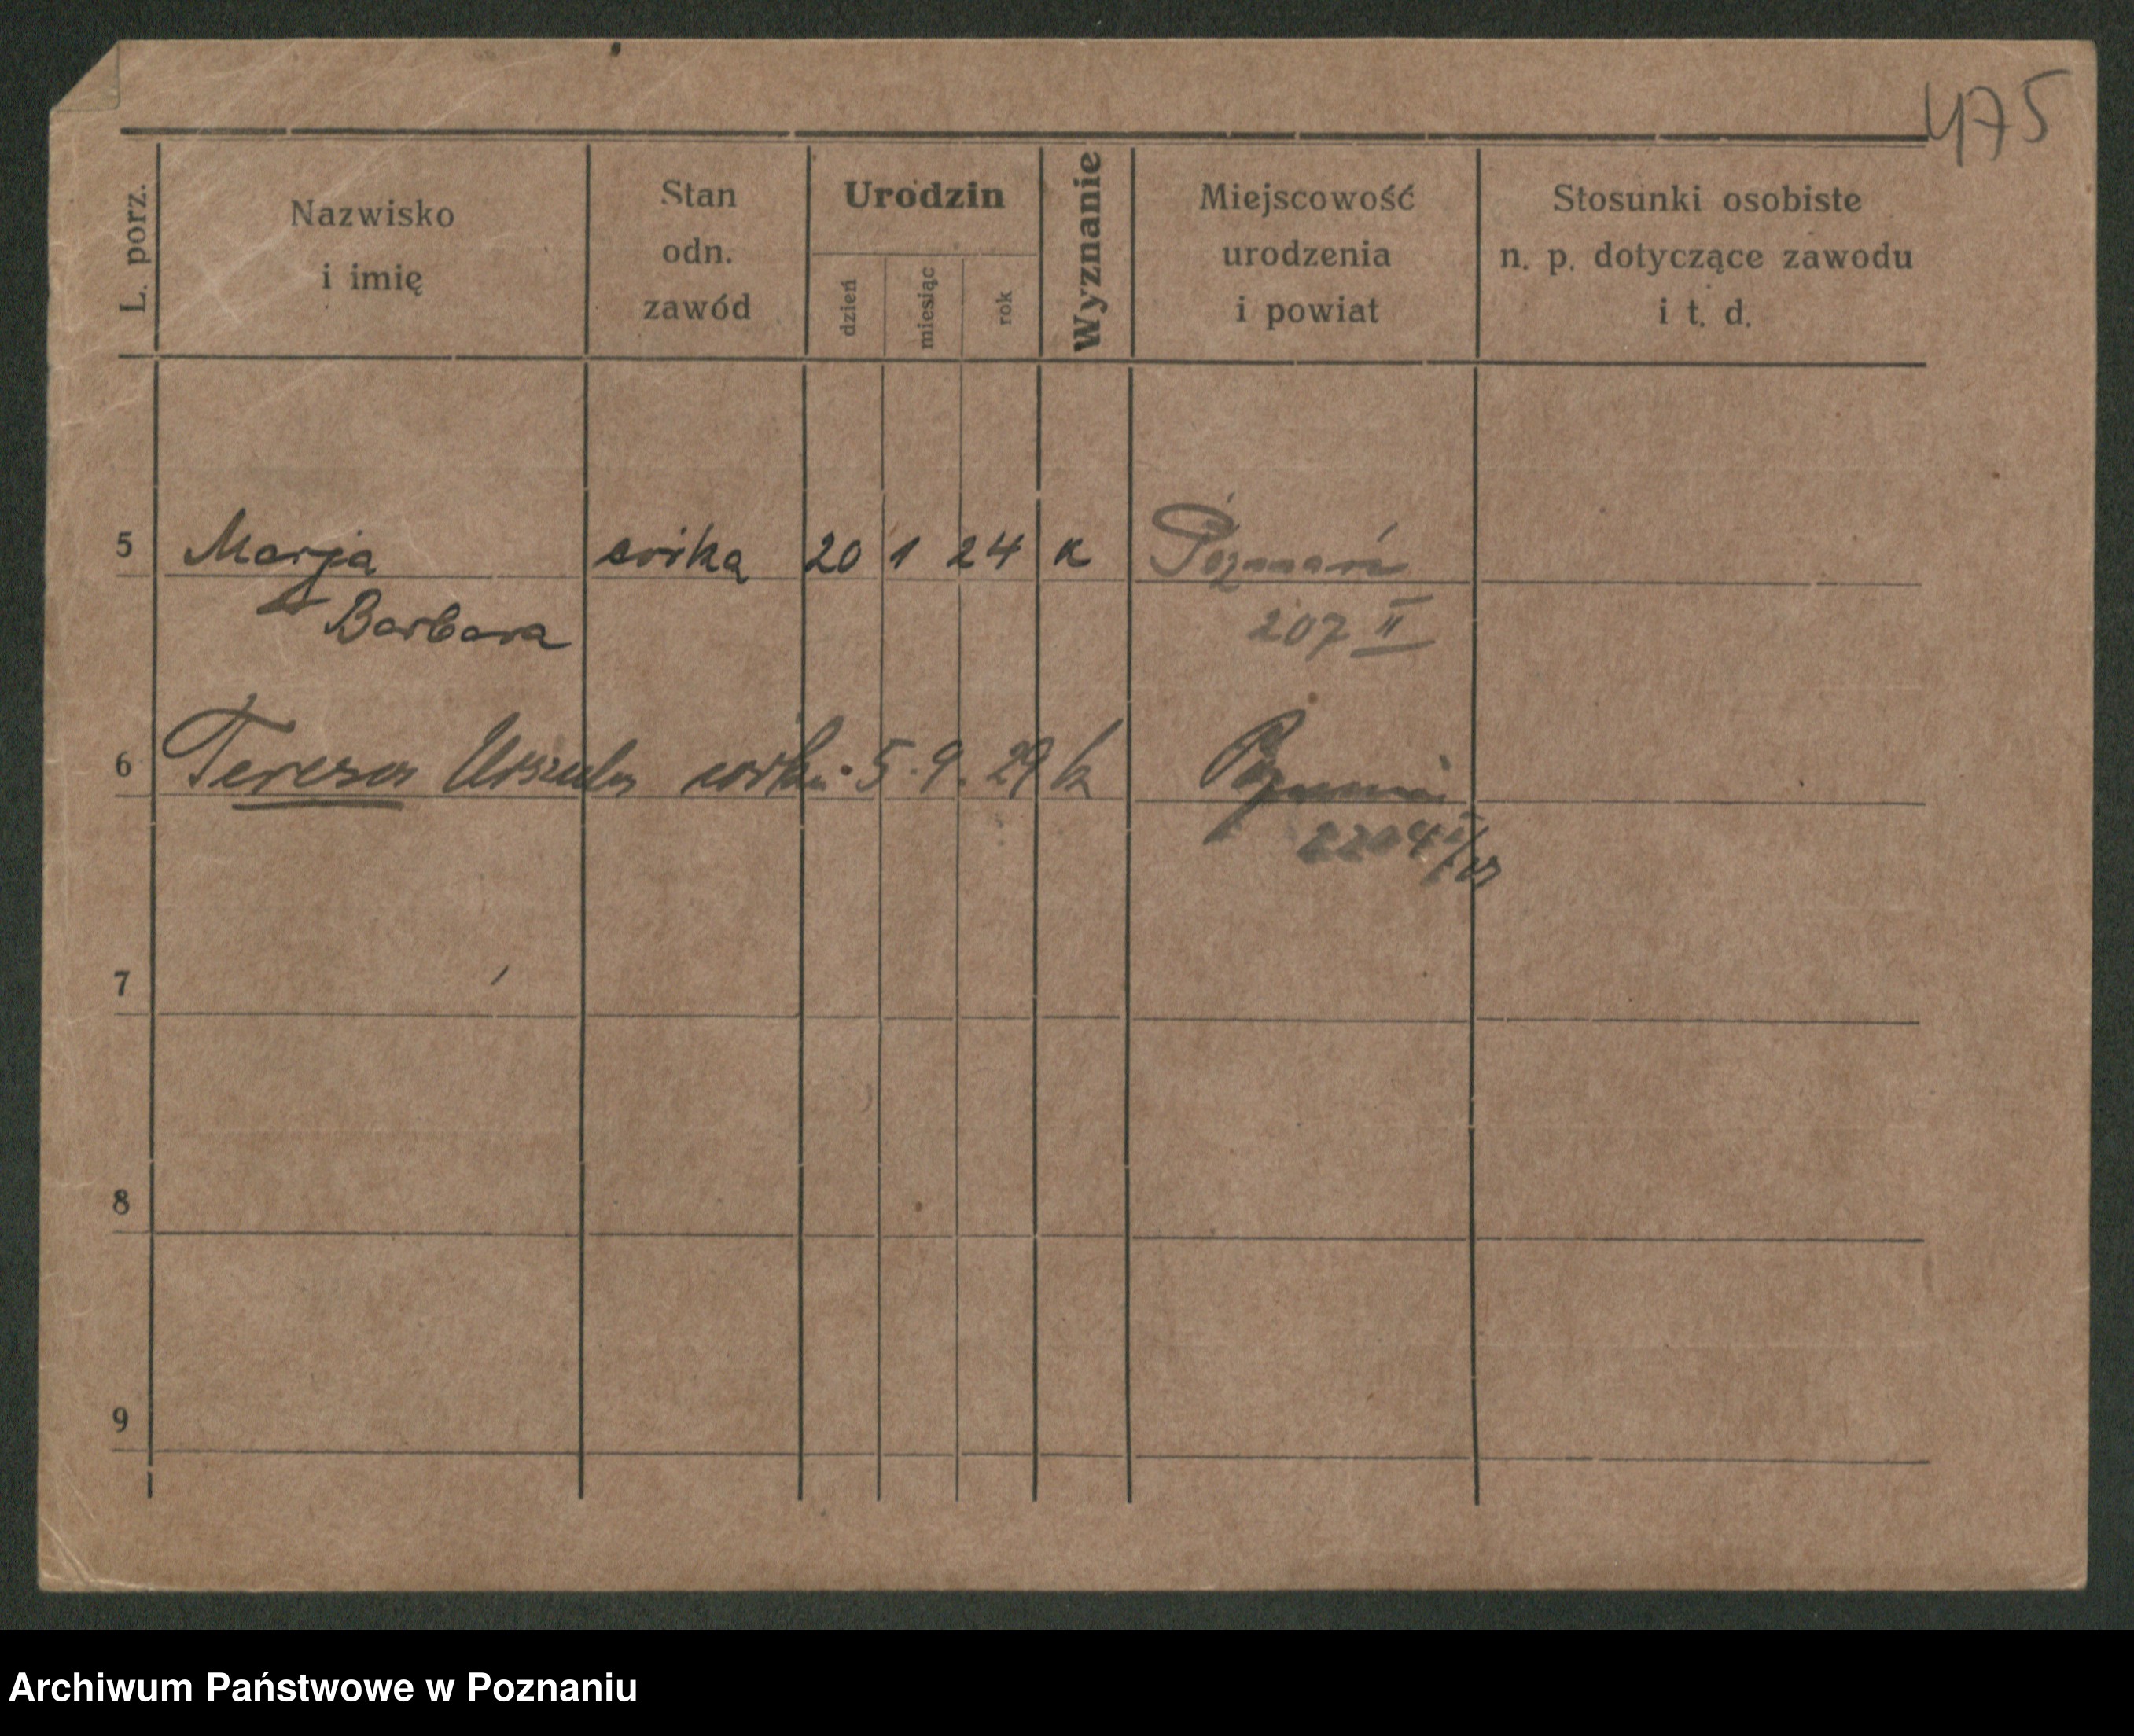 475
L. porz.
Nazwisko
i imię
Stan
odn.
zawód
Urodzin
dzień
miesiąc
rok
Wyznanie
Miejscowość
urodzenia
i powiat
Stosunki osobiste
n. p. dotyczące zawodu
i t. d.
5 Marja córka 20 1 24 k Poznań
Barbara 207 II
6 Teresa Urszula córka 5. 9. 29 k Poznań
7
8
9
Archiwum Państwowe w Poznaniu